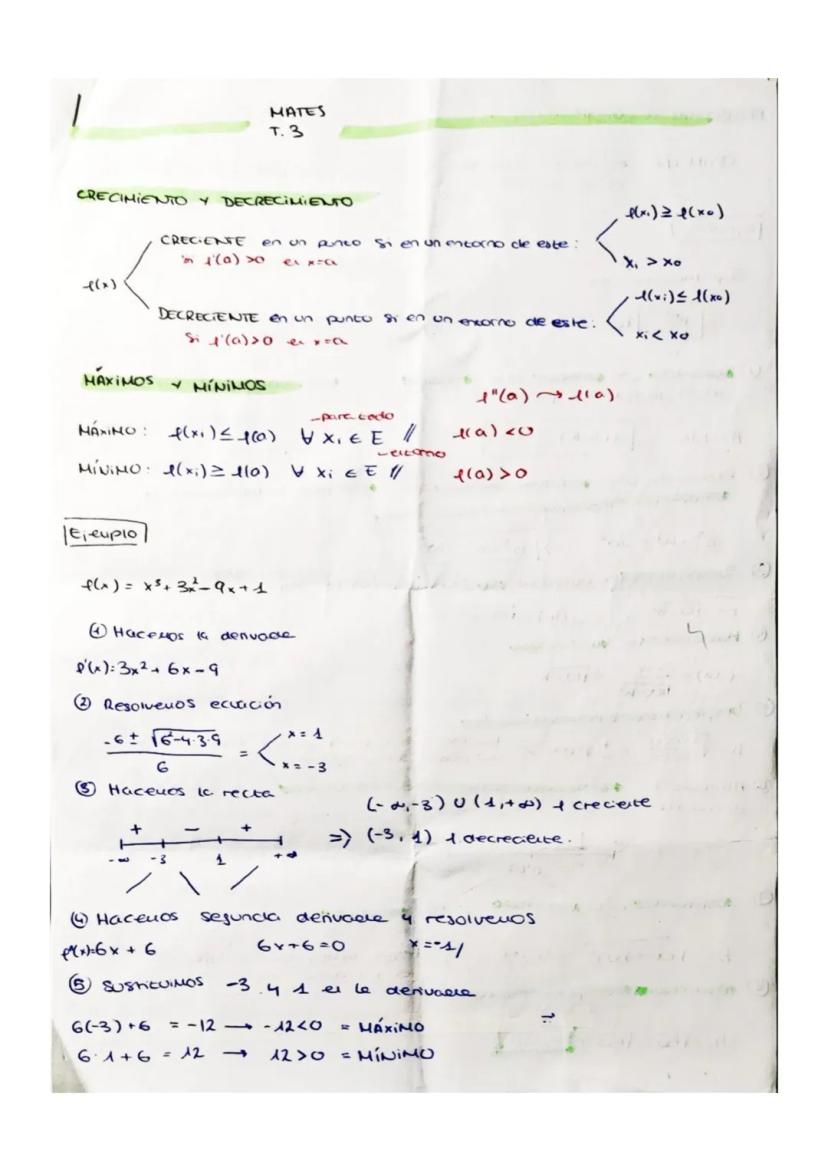 MATES
T. 3
CRECIMIENTO Y DECRECIMIENTO
f(x)
CRECIENTE en un punto si en un entorno de este:
f(x₁) ≥ f(x₀)
x₁ > x₀
si f'(a) > 0 en x=a
DECRECIENTE en un punto si en un entorno de este:
f(x₁) ≤ f(x₀)
x₁ < x₀
Si f'(a) > 0 en x=a
MÁXIMOS Y MÍNIMOS
f''(a) → f(a)
para todo
MÁXIMO: f(x₁) ≤ f(a) ∀ x₁ ∈ E // f(a) < 0
entorno
MÍNIMO: f(x₁) ≥ f(a) ∀ x₁ ∈ E // f(a) > 0
Ejemplo
f(x) = x³ + 3x² - 9x + 1
① Hacemos la derivada
f'(x): 3x² + 6x - 9
② Resolvemos ecuación
-6 ± √6-4·3·9 / 6 = x = 1
x = -3
③ Hacemos la recta
+ - +
-∞ -3 1 +∞
(-∞,-3) ∪ (1,+∞) f creciente
⇒ (-3, 1) f decreciente.
④ Hacemos segunda derivada y resolvemos
f''(x)=6x + 6 6x+6=0 x=-1/
⑤ Sustituimos -3 y 1 en la derivada
6(-3)+6 = -12 → -12<0 = MÁXIMO
6·1+6 = 12 → 12>0 = MÍNIMO